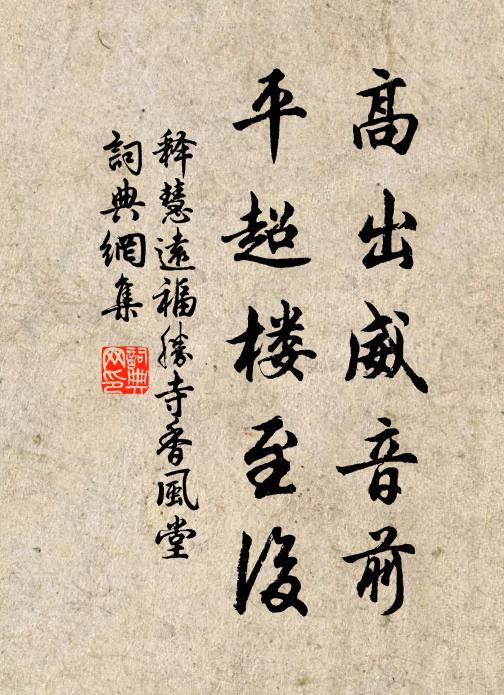 高出威音前
平超楼至後
释慧遠福勝寺香風堂
詞典網集
詞典網印